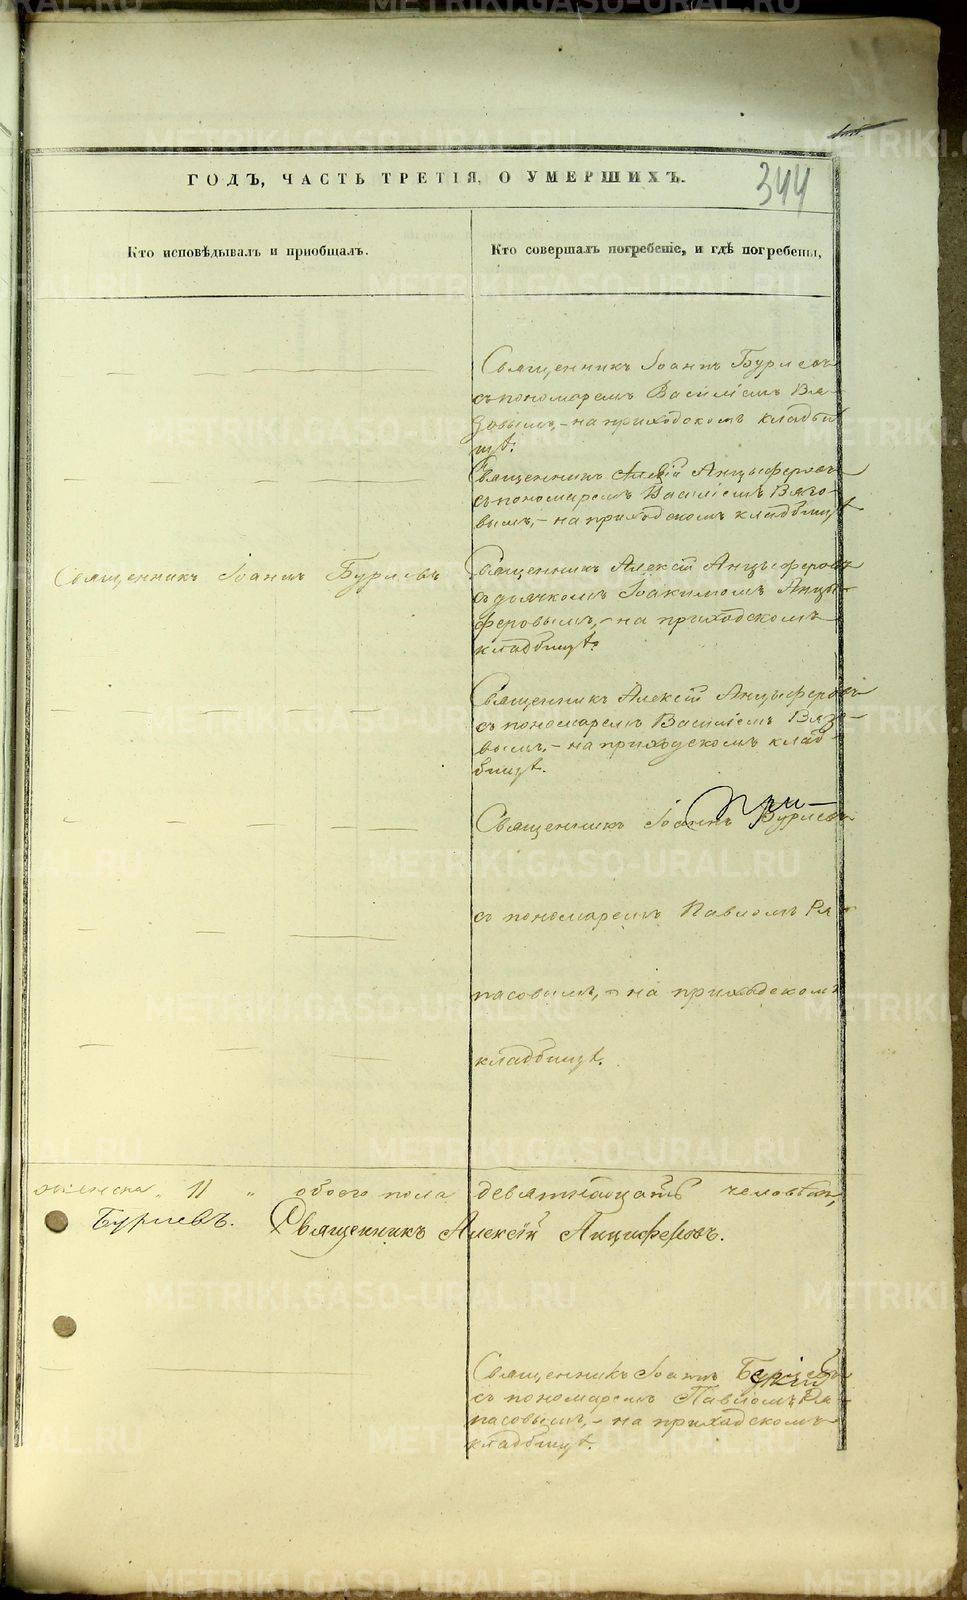 344
ГОДЪ, ЧАСТЬ ТРЕТІЯ, О УМЕРШИХЪ.
Кто исповѣдывалъ и пріобщалъ.
Кто совершалъ погребеніе, и гдѣ погребены,
Священникъ Іоаннъ Бурлевъ
съ пономаремъ Василіемъ Вя-
зовымъ, - на приходскомъ кладби
щѣ.
Священникъ Алексій Анцыферовъ
съ пономаремъ Василіемъ Вязо-
вымъ, - на приходскомъ кладбищѣ
Священникъ Іоаннъ Бурлевъ
Священникъ Алексій Анцыферовъ
съ дьячкомъ Іоакимомъ Анцы-
феровымъ, - на приходскомъ
кладбищѣ.
Священникъ Алексій Анцыферовъ
съ пономаремъ Василіемъ Вязо-
вымъ, - на приходскомъ клад-
бищѣ.
При-
Священникъ Іоаннъ Бурлевъ
съ пономаремъ Павломъ Ря-
пасовымъ, - на приходскомъ
кладбищѣ.
женска " 11 " обоего пола девятнадцать человѣкъ,
Бурлевъ. Священникъ Алексій Анцыферовъ.
Священникъ Іоаннъ Бурлевъ
съ пономаремъ Павломъ Ря-
пасовымъ, - на приходскомъ
кладбищѣ.
METRIKI.GASO-URAL.RU